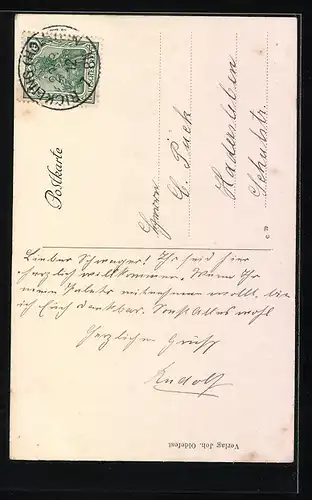 RICKLING (HO
Postkarte
Herrn
C. Pück
Hadersleben
Schulstr.
Lieber Schwager! Ihr seid hier
herzlich willkommen. Wenn Ihr
meinen Paletot mitnehmen wollt, bin
ich Euch dankbar. Sonst Alles wohl
Herzlichen Gruß
Rudolf
Verlag Joh. Oldefest